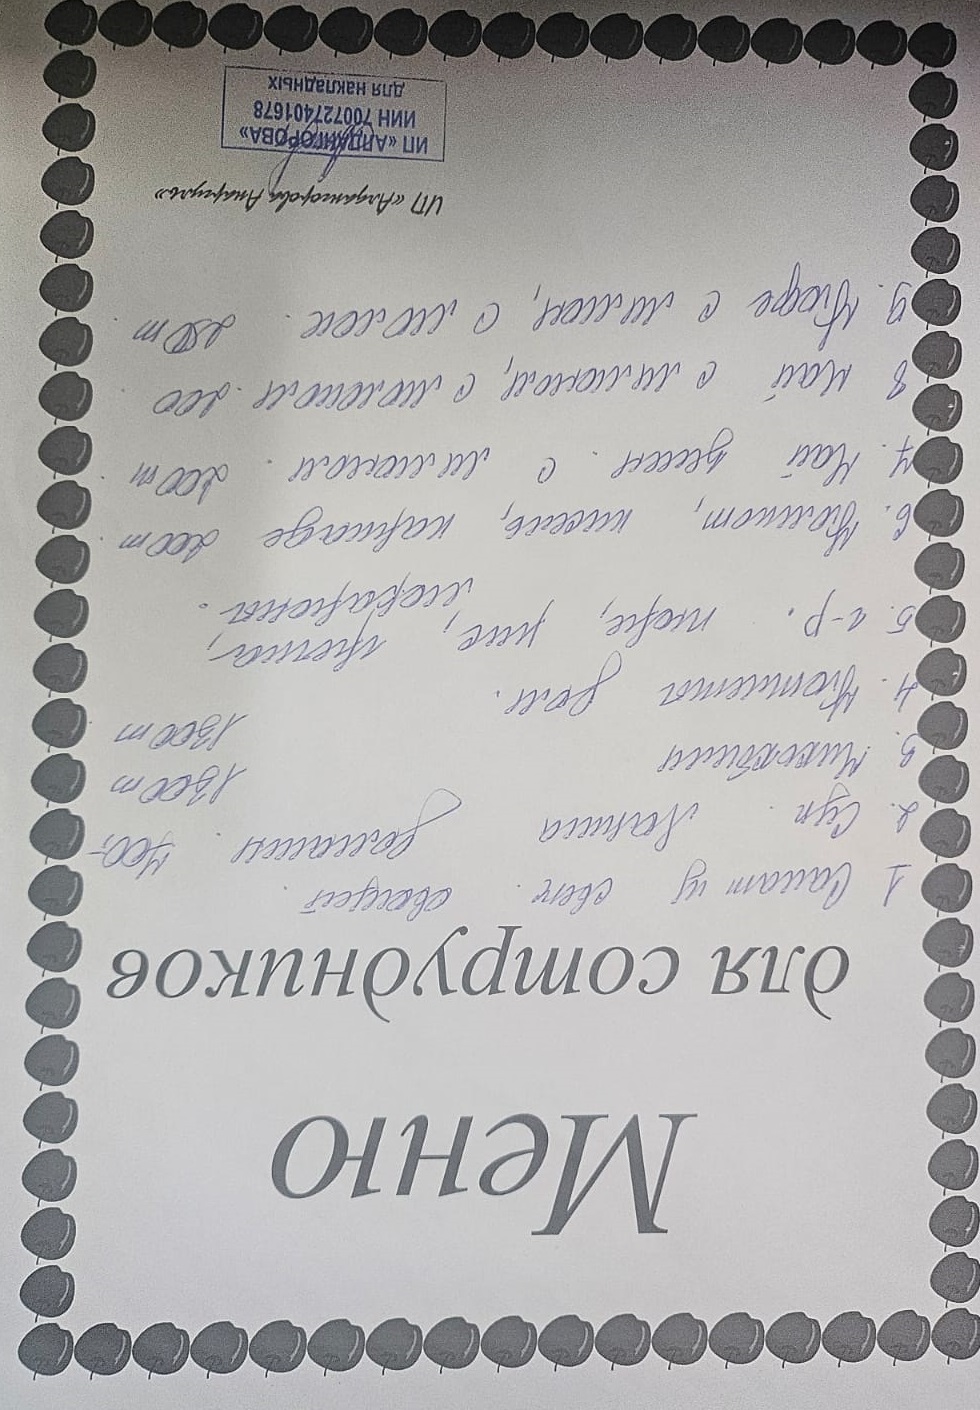 Меню
для сотрудников
1 Салат из свеж. овощей.
2. Суп. Лапша домашн. 700,-
3. Мясо 1300т
4. Котлета дом. 1300т
5. г-р. пюре, рис, гречка,
макароны.
6. Компот, кисель, каркаде 200т.
7. Чай зелен. с лимоном. 200т.
8 Чай с лимоном, с молоком. 200.
9. Кофе с лимон, с молок. 250т.
ИП «Алдангорова Анаргуль»
ИП «АЛДАНГОРОВА»
ИИН 700727401678
для накладных